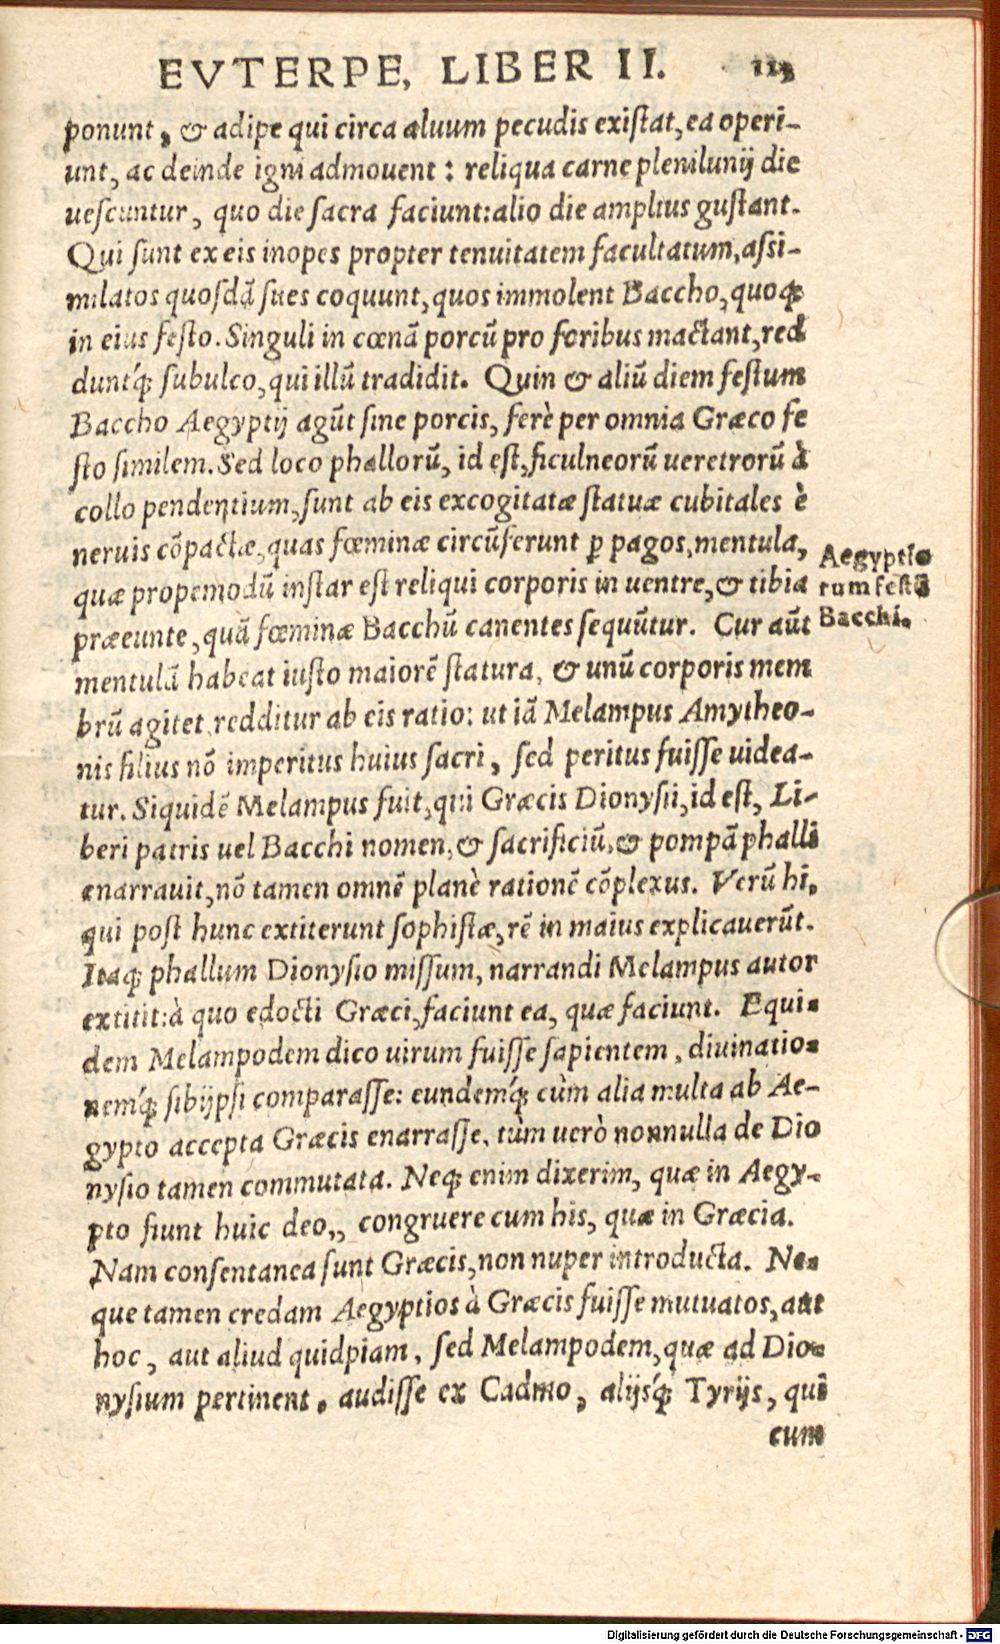 EVTERPE, LIBER II. 113
ponunt, & adipe qui circa aluum pecudis exiſtat, ea operi-
unt, ac deinde igni admouent: reliqua carne plenilunij die
ueſcuntur, quo die ſacra faciunt: alio die amplius guſtant.
Qui ſunt ex eis inopes propter tenuitatem facultatum, aſſi-
milatos quoſdā ſues coquunt, quos immolent Baccho, quoq́;
in eius feſto. Singuli in cœnā porcū pro foribus mactant, red
duntq́; ſubulco, qui illū tradidit. Quin & aliū diem feſtum
Baccho Aegyptij agūt ſine porcis, ferè per omnia Græco fe
ſto ſimilem. Sed loco phallorū, id eſt, ficulneorū ueretrorū à
collo pendentium, ſunt ab eis excogitatæ ſtatuæ cubitales è
neruis cōpactæ, quas fœminæ circūferunt ꝑ pagos, mentula,
quæ propemodū inſtar eſt reliqui corporis in uentre, & tibia
præeunte, quā fœminæ Bacchū canentes ſequūtur. Cur aūt
Aegyptio
rum feſtū
Bacchi.
mentulā habeat iuſto maiorē ſtatura, & unū corporis mem
brū agitet, redditur ab eis ratio: ut iā Melampus Amytheo-
nis filius nō imperitus huius ſacri, ſed peritus fuiſſe uidea-
tur. Siquidē Melampus fuit, qui Græcis Dionyſii, id eſt, Li-
beri patris uel Bacchi nomen, & ſacrificiū, & pompā phalli
enarrauit, nō tamen omnē planè rationē cōplexus. Verū hi,
qui poſt hunc extiterunt ſophiſtæ, rē in maius explicauerūt.
Itaq; phallum Dionyſio miſſum, narrandi Melampus autor
extitit: à quo edocti Græci, faciunt ea, quæ faciunt. Equi-
dem Melampodem dico uirum fuiſſe ſapientem, diuinatio-
nemq́; ſibijpſi comparaſſe: eundemq́; cùm alia multa ab Ae-
gypto accepta Græcis enarraſſe, tùm uerò nonnulla de Dio
nyſio tamen commutata. Neq; enim dixerim, quæ in Aegy-
pto fiunt huic deo,, congruere cum his, quæ in Græcia.
Nam conſentanea ſunt Græcis, non nuper introducta. Ne-
que tamen credam Aegyptios à Græcis fuiſſe mutuatos, aut
hoc, aut aliud quidpiam, ſed Melampodem, quæ ad Dio-
nyſium pertinent, audiſſe ex Cadmo, alijsq́; Tyrijs, qui
cum
Digitalisierung gefördert durch die Deutsche Forschungsgemeinschaft - DFG